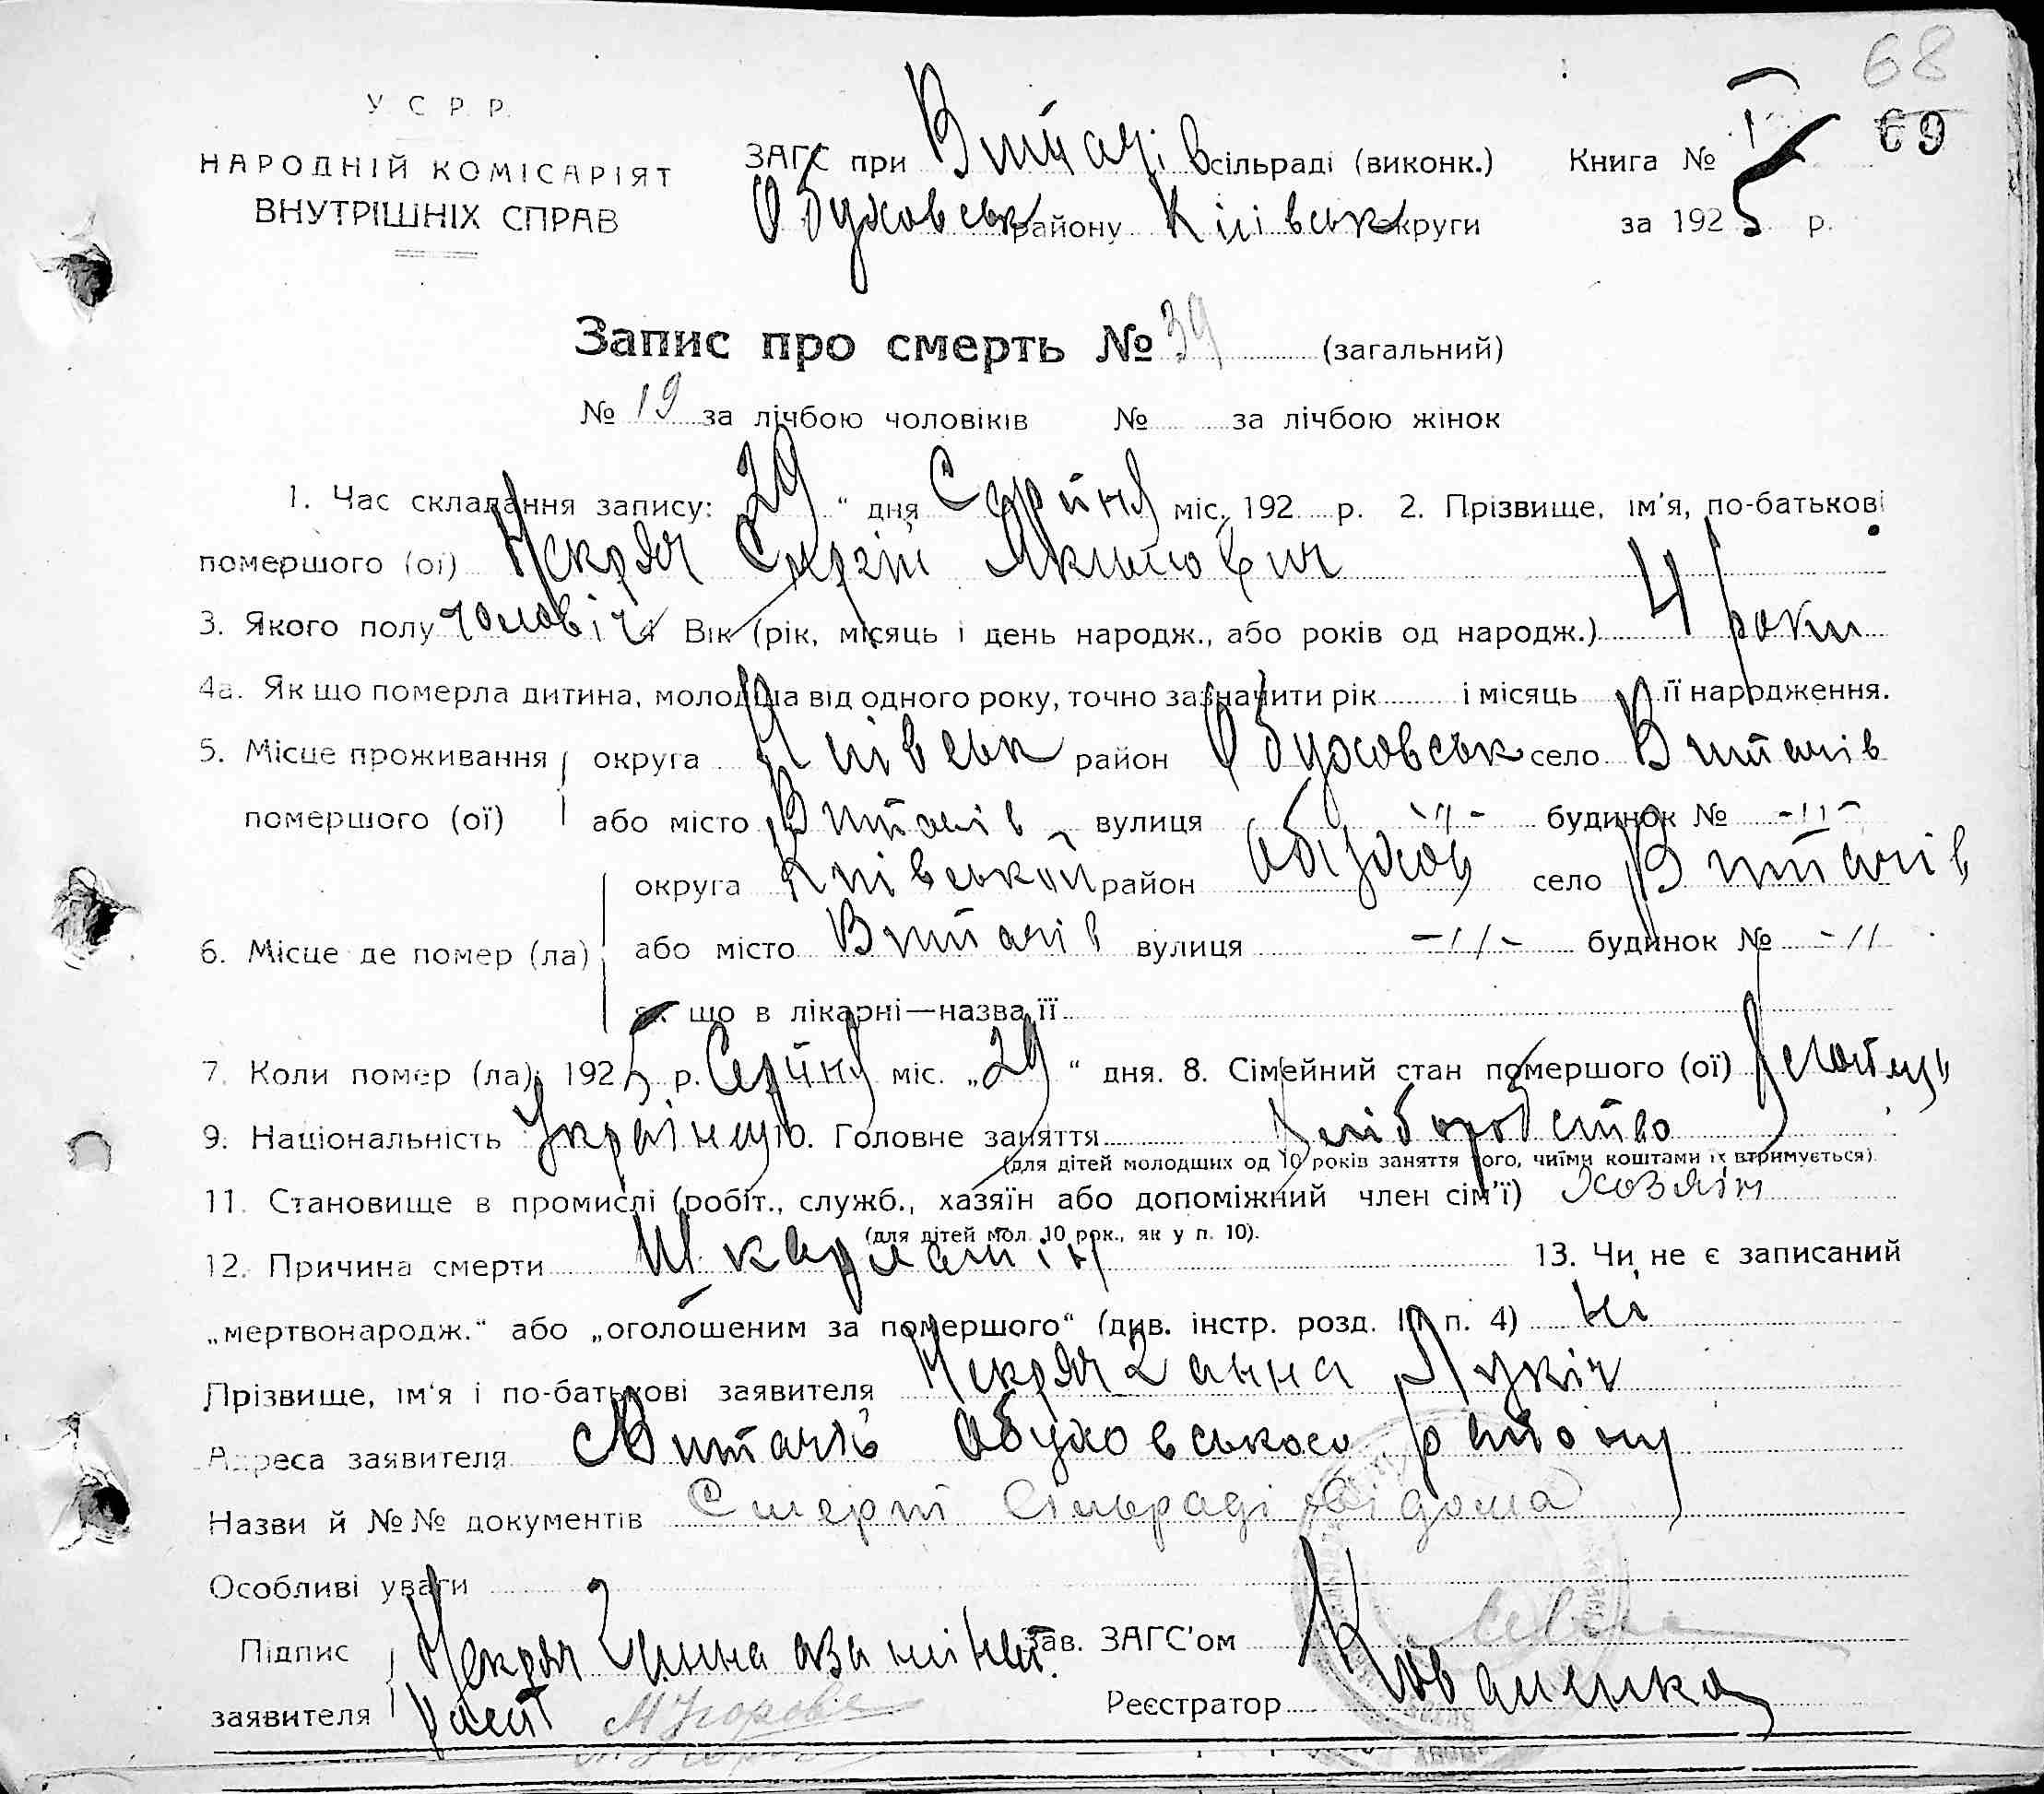 68
69
У С Р Р.
НАРОДНІЙ КОМІСАРІЯТ
ВНУТРІШНІХ СПРАВ
ЗАГС при Витачів сільраді (виконк.) Книга № I
Обуховськ району Київськ округи за 1925 р.
Запис про смерть № 39 (загальний)
№ 19 за лічбою чоловіків № за лічбою жінок
1. Час складання запису: 29 " дня Серпня міс. 192 р. 2. Прізвище, ім'я, по-батькові
помершого (ої) Некряч Сергій Якимович
3. Якого полу чоловіч 4 Вік (рік, місяць і день народж., або років од народж.) 4 роки
4а. Як що померла дитина, молодша від одного року, точно зазначити рік і місяць її народження.
5. Місце проживання округа Київськ район Обуховськ село Витачів
помершого (ої) або місто Витачів вулиця -"- будинок № -"-
округа Київської район Обухов село Витачів
6. Місце де помер (ла) або місто Витачів вулиця -"- будинок № -"
як що в лікарні—назва її
7. Коли помер (ла): 1925 р. Серпня міс. „29 " дня. 8. Сімейний стан помершого (ої)
9. Національність Українец 10. Головне заняття хліборобство
(для дітей молодших од 10 років заняття того, чиїми коштами їх втримується)
11. Становище в промислі (робіт., служб., хазяїн або допоміжний член сім'ї) хозяїн
(для дітей мол. 10 рок., як у п. 10).
12. Причина смерти Шкарлатін 13. Чи не є записаний
„мертвонародж." або „оголошеним за помершого" (див. інстр. розд. III п. 4) ні
Прізвище, ім'я і по-батькові заявителя Некряч Ганна Лукіч
Адреса заявителя с Витачів Обуховського району
Назви й №№ документів Смерть сільраді відома
Особливі уваги
Підпис Некряч Ганна а за Зав. ЗАГС'ом
заявителя Реєстратор Коваленко